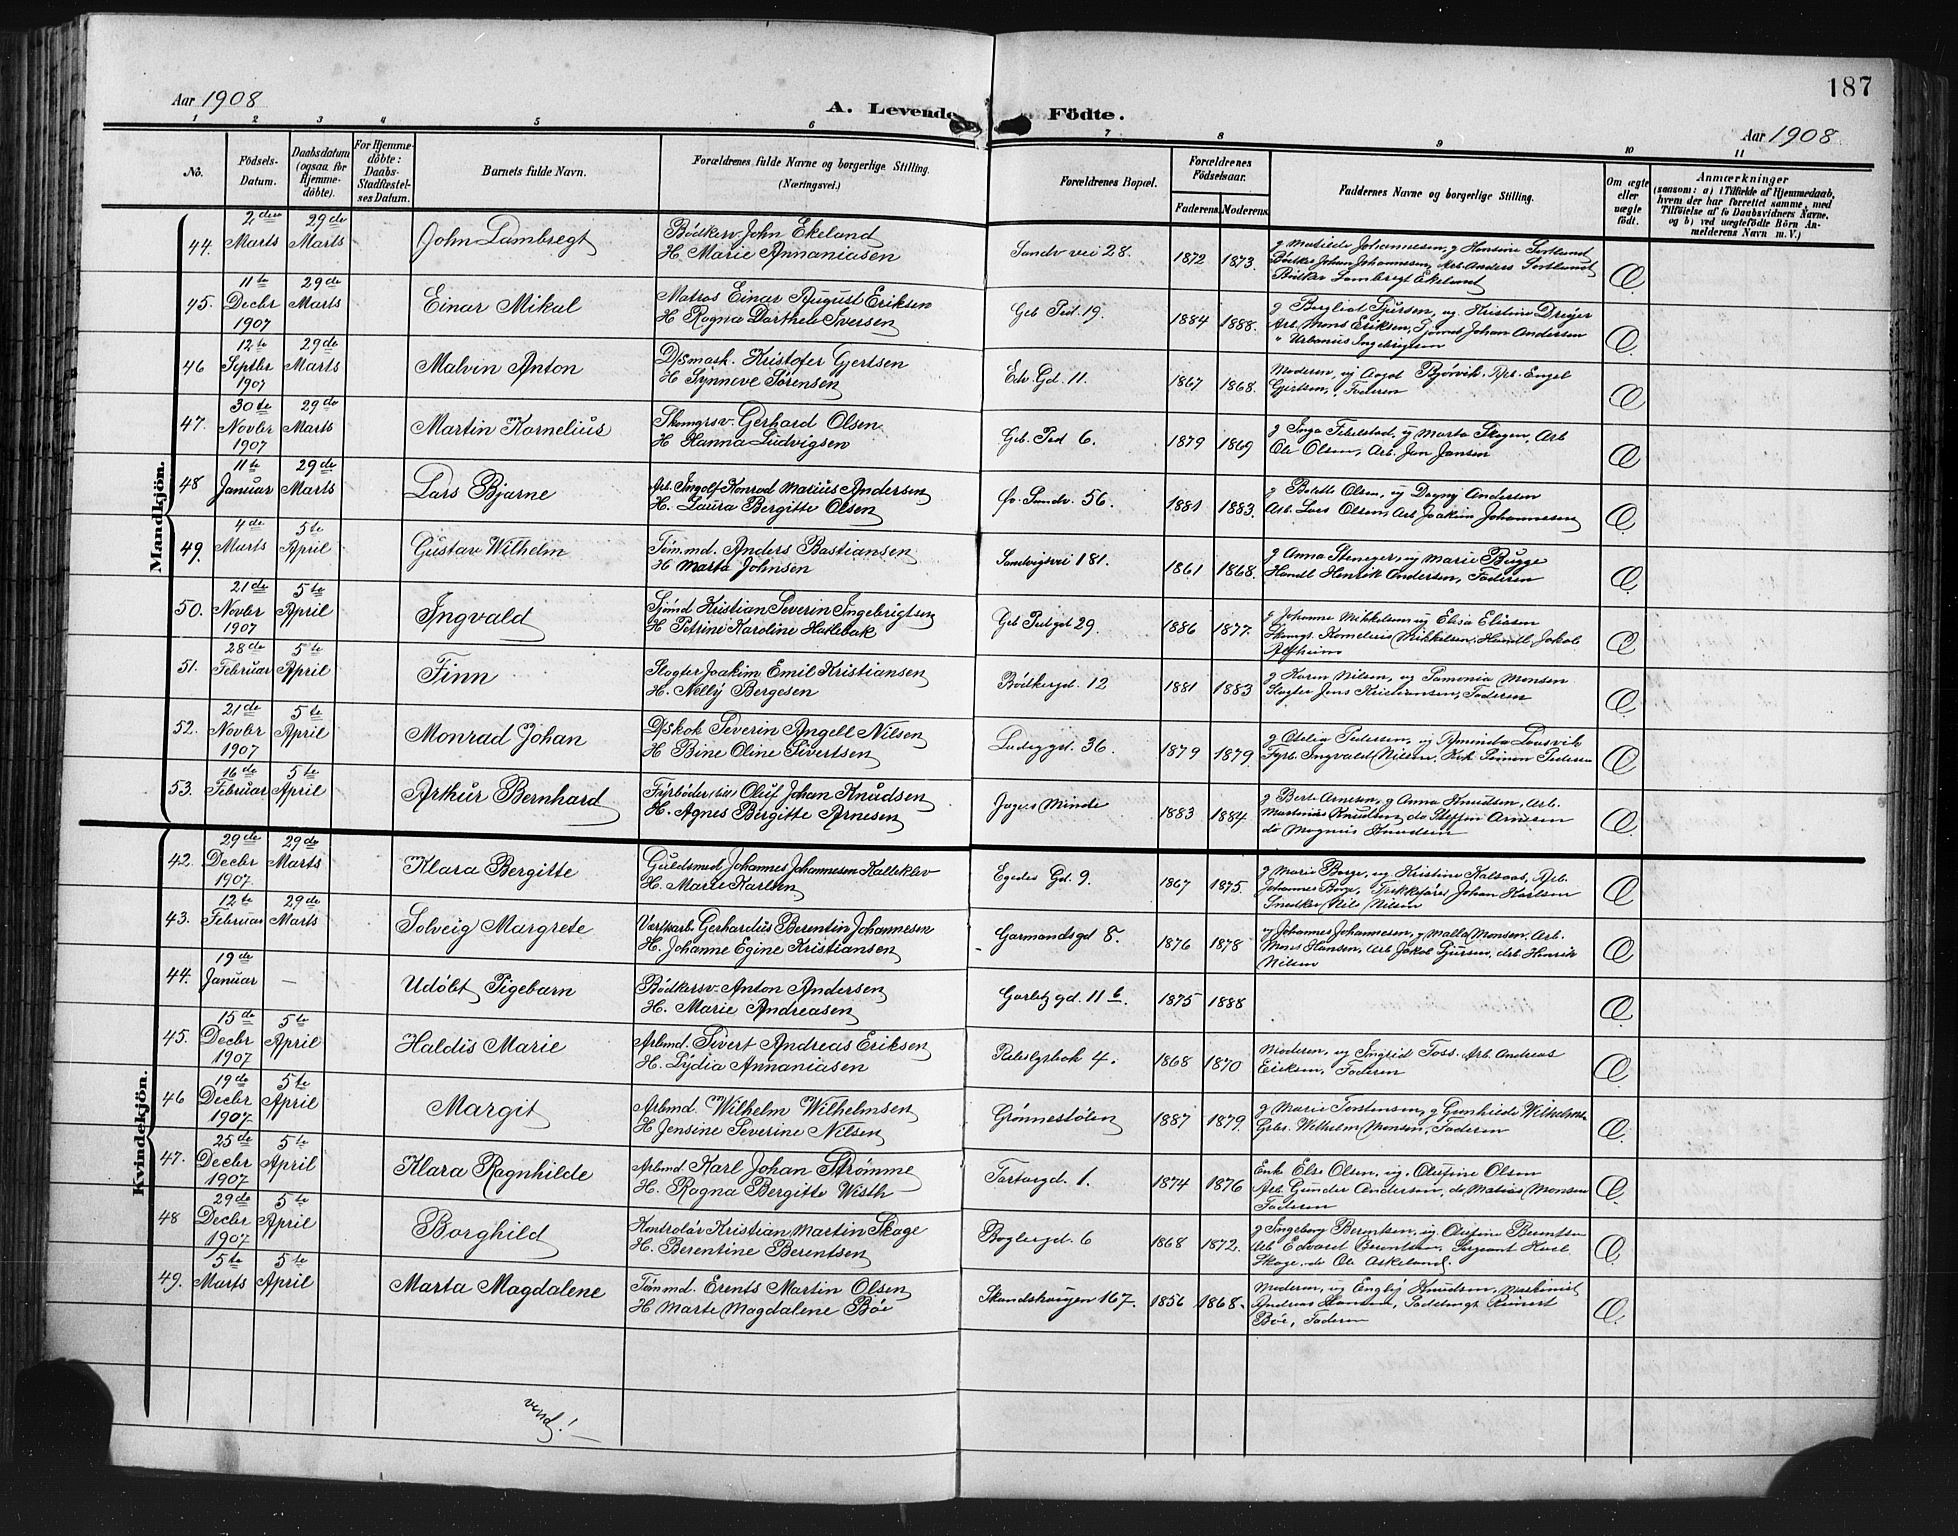 187
Aar 1908
A. Levende Födte.
Aar 1908
1 2 3 4 5 6 7 8 9 10 11
No.
Födsels-Datum.
Daabsdatum (ogsaa for Hjemmedöbte).
For Hjemmedöbte: Daabs-Stadfæstelses Datum.
Barnets fulde Navn.
Forældrenes fulde Navne og borgerlige Stilling. (Næringsvei.)
Forældrenes Bopæl.
Forældrenes Födselsaar.
Faderens. Moderens.
Faddernes Navne og borgerlige Stilling.
Om ægte eller uægte födt.
Anmærkninger
(saasom: a) i Tilfælde af Hjemmedaab, hvem der har forrettet samme, med Tilföielse af to Daabsvidners Navne. og b) ved uægtefödte Börn Anmelderens Navn m. V.)
Mandkjön.
44. 2den Marts 29de Marts John Lambregt Bødkersv. John Ekeland
H. Marie Annaniasen Sandv vei 28. 1872 1873. g Matilde Johannesen, g Hansine Sortland
Bødker Johan Johannessen, Arb. Anders Sortland
Bødker Lambregt Ekeland Æ.
45. 11te Decbr 1907 29de Marts Einar Mikal Matros Einar August Eriksen
H Ragna Dorthea Iversen 19. 1884 1888. g Bergliot Sjursen, ug Kristine Dreyer
Arb. Mons Eriksen, Sjømd Johan Andersen
" Urbanius Ingebrigtsen Æ.
46 12te Septbr 1907 29de Marts Malvin Anton D/smask. Kristofer Gjertsen
H Synneve Sørensen Edv. Gd. 11. 1867 1868. Moderen, ug Aagot Bjørvik, Arb. Engel
Gjertsen, Faderen Æ
47. 30te Novbr 1907 29de Marts Martin Kornelius Skomgrsv. Gerhard Olsen
H Hanna Ludvigsen 6. 1879 1869 g Inga, ug Marta Skogen, Arb
Ole Olsen, Arb. Jan Jansen Æ
48 11te Januar 29de Marts Lars Bjarne Arb. Ingolf Konrad Marius Andersen
H. Laura Bergitte Olsen Øv. Sandv. 56. 1881 1883. g Bolette Olsen, ug Dagny Andersen
Arb. Lars Olsen, Arb Joakim Johannesen Æ.
49. 4de Marts 5te April Gustav Wilhelm Tømmd. Anders Bastiansen
H Marta Johnsen Sandvigsvei 181. 1861 1868. g Anna Steneger, ug Marie Bugge
Handl Henrik Andersen, Faderen Æ.
50. 21de Novbr 1907 5te April Ingvald Sjømd Kristian Severin Ingebrigtsen
H Petrine Karoline Haklebak 29. 1886 1877. g Johanne Mikkelsen, ug Elisa Eliesen
Skomgr. Kornelius Mikkelsen, Handl. Jakob Æ.
51. 28de Februar 5te April Finn Slagter Joakim Emil Kristiansen
H. Nelly Bergesen Bødkergd. 12 1881 1883 g Karen Nilsen, ug Monsen
Slagter Jens Kristiansen, Faderen Æ.
52. 21de Novbr 1907 5te April Monrad Johan D/skok Severin Angell Nilsen
H Bine Oline Sivertsen 36. 1879 1879. g Odelia Pedersen, ug
Fyrb. Ingvald Nilsen, Simon Pedersen Æ
53. 16de Februar 5te April Arthur Bernhard Fyrbøder Oluf Johan Knudsen
H. Agnes Bergitte Arnesen Jägers Minde 1883 1884. g Berte Arnesen, g Anna Knudsen, Arb.
Martinius Knudsen, do Steffen Arnesen
do Magnus Knudsen Æ.
Kvindekjön.
42. 29de Decbr 1907. 29de Marts Klara Bergitte Guldsmed Johannes Johannesen Kalleklev
H. Marie Karlsen Egedes Gd. 9. 1867 1875. g Marie Borge, ug Kristine Kalsaas, Arb.
Johannes Borge, Johan Karlsen
Snedker Nils Nilsen Æ
43. 12te Februar 29de Marts Solveig Margrete Værftsarb. Gerhardus Berentin Johannesen
H. Johanne Egine Kristiansen Garmandsgd 8. 1876 1878 g Johannes Johannesen, g Malla Monsen, Arb.
Mons Hansen, Arb Jakob Sjursen, Arb. Henrik
Nilsen Æ
44. 19de Januar — Udöbt Pigebarn Bødkersv. Anton Andersen
H. Marie Andreasen 11 b. 1875 1888 Æ.
45. 15de Decbr 1907 5te April Haldis Marie Arbmd. Sivert Andreas Eriksen
H. Lydia Annaniasen 4. 1868 1870 Moderen, ug Ingrid Foss. Arb Andreas
Eriksen, Faderen Æ
46 19de Decbr 1907. 5te April Margit Arbmd. Wilhelm Wilhelmsen
H Jensine Severine Nilsen Grønnestølen 1887 1879. g Marie Torstensen, g Gunhilde Wilhelmsen
Wilhelm Monsen, Faderen Æ.
47. 25de Decbr 1907 5te April Klara Ragnhilde Arbmd. Karl Johan Strømme
H. Ragna Bergitte Wisth Tartargd. 1. 1874 1876 Enk Else Olsen, ug. Olufine Olsen
Arb. Gunder Andersen, do Matias Monsen
Faderen Æ.
48 29de Decbr 1907 5te April Borghild Kontrolør Kristian Martin Skage
H. Berentine Berentsen 6 1868 1872. g Ingeborg Berentsen, ug. Olufine Berentsen
Arb Edvard Berentsen, Sergeant Karl
Skage, do Ole Askeland. Æ.
49. 5te Marts 5te April Marta Magdalene Tømmd. Erents Martin Olsen
H Marte Magdalene Bøe Skandskaugen 167. 1856 1868. Moderen, ug Engly Knudsen, Maskinist
Andreas Hansen, Reinert
Bøe, Faderen Æ.
vend!